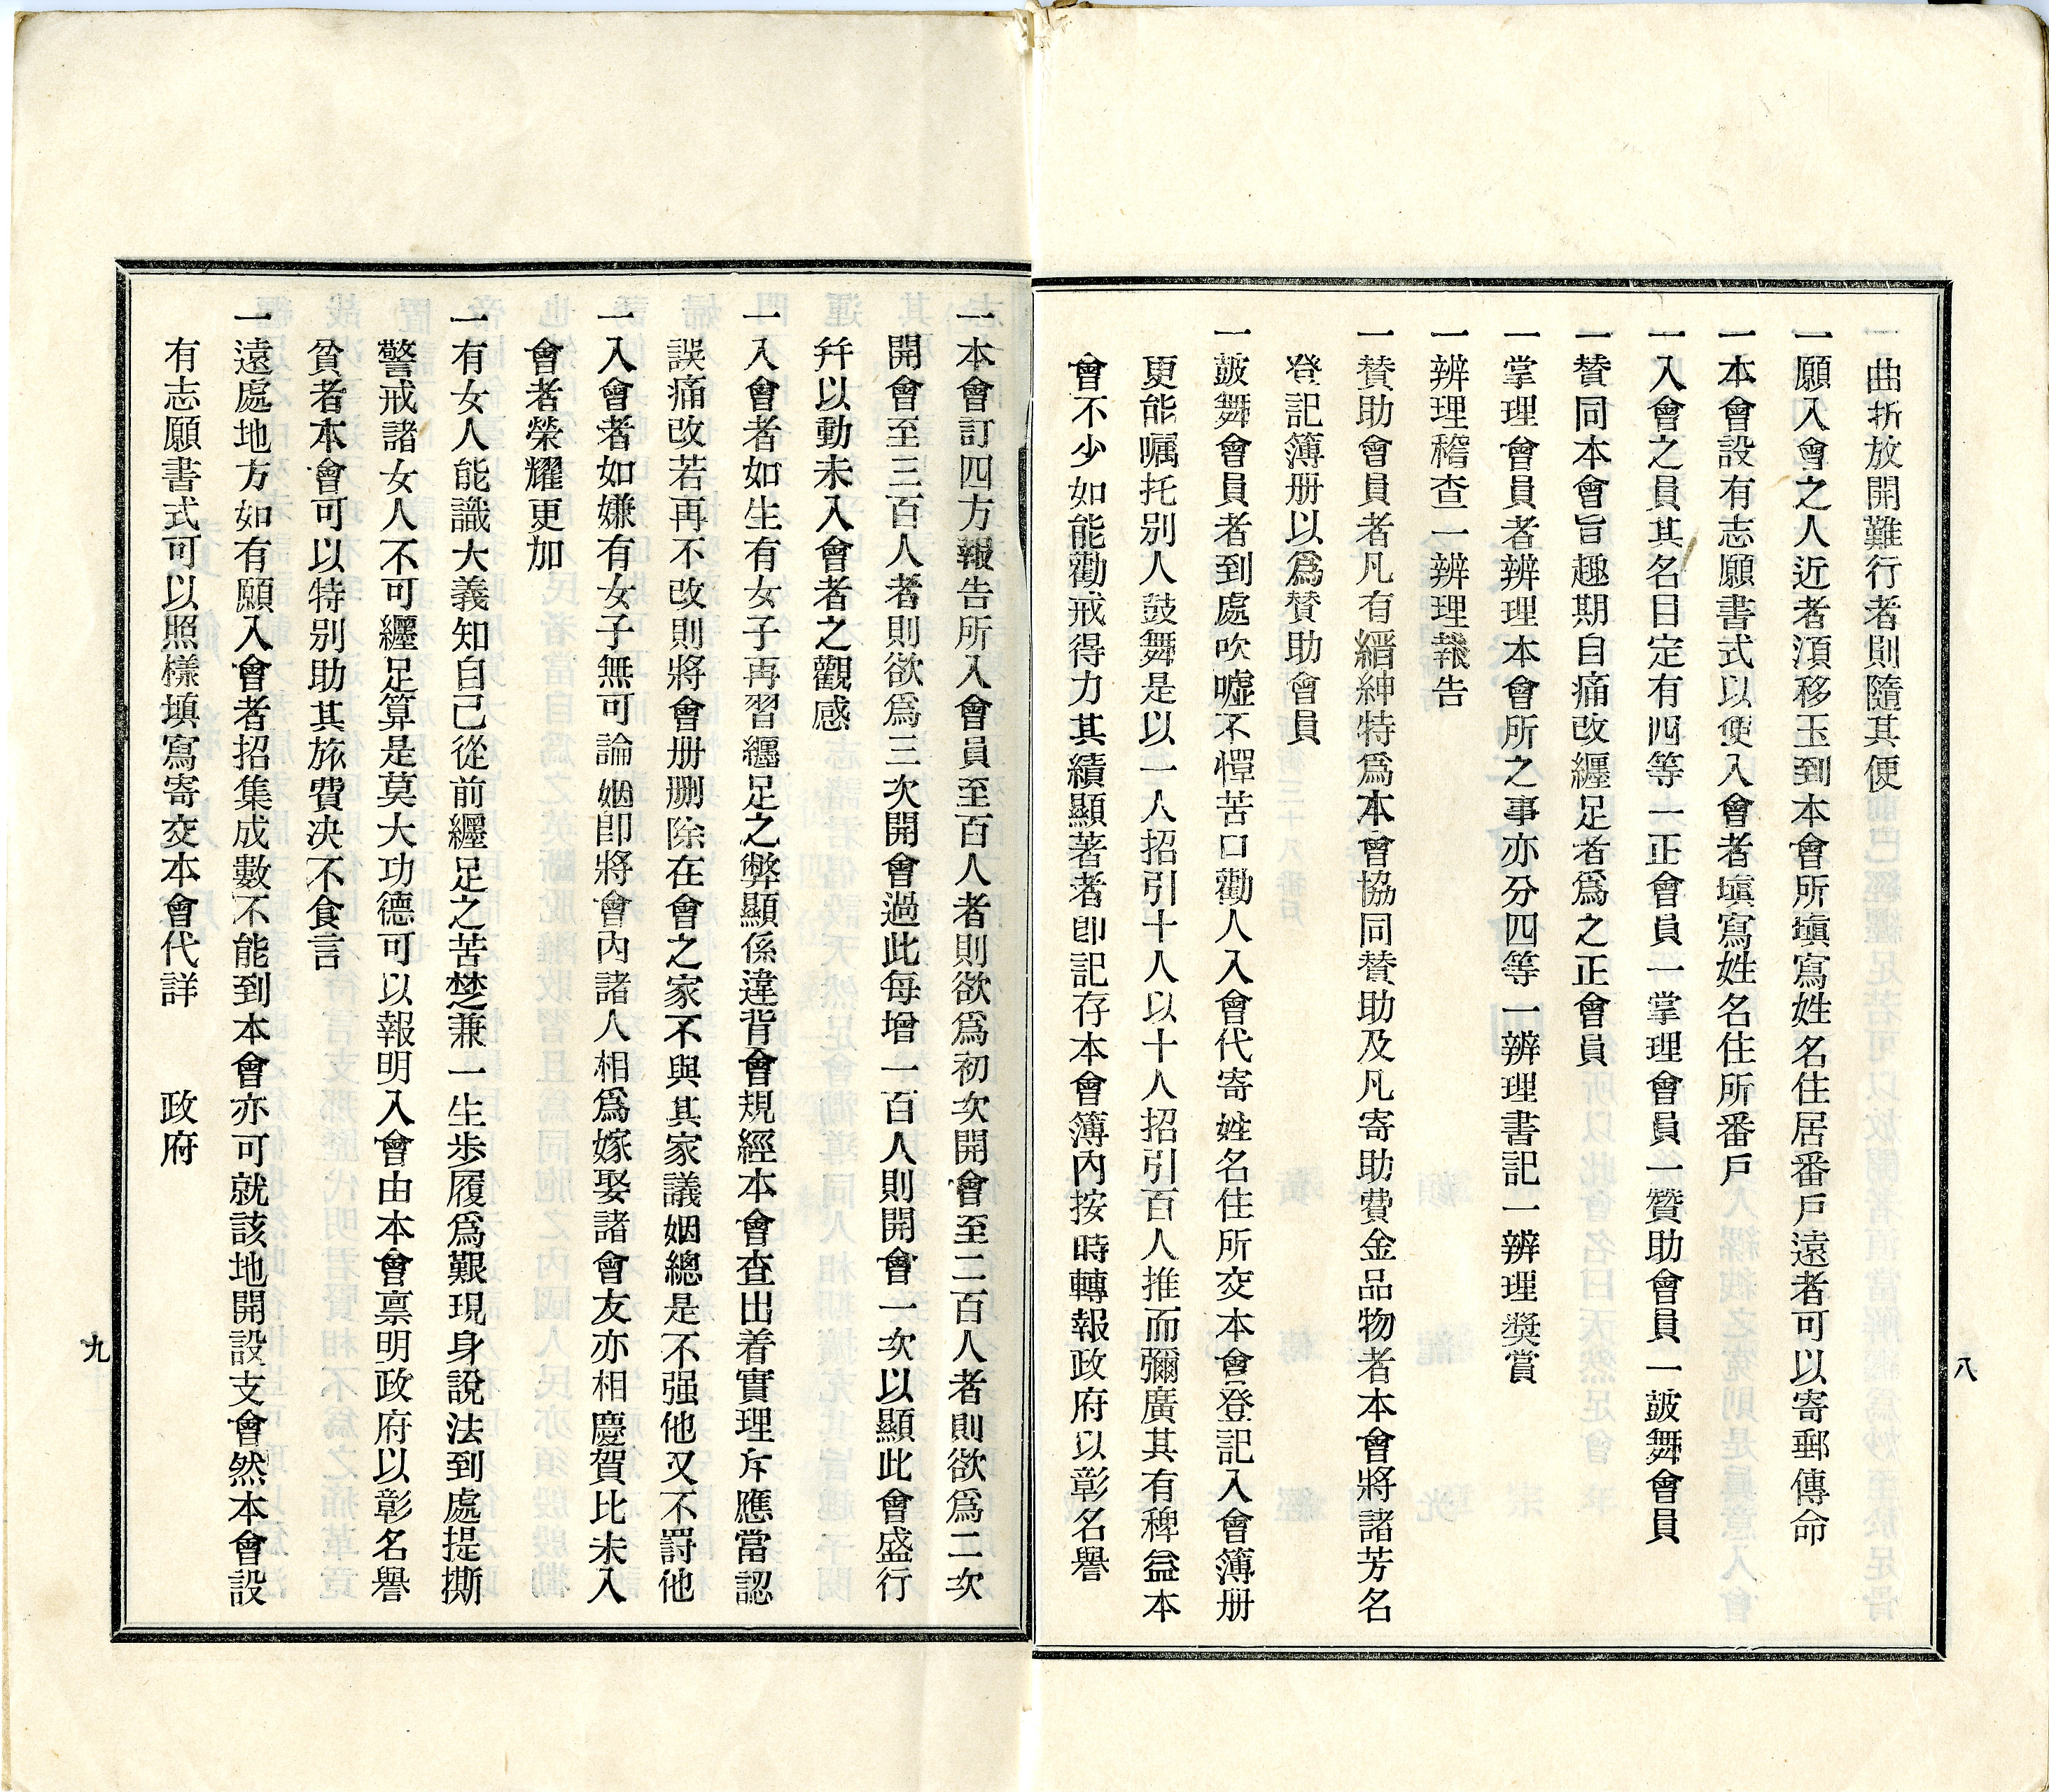 曲折放開難行者則隨其便
一願入會之人近者湏移玉到本會所塡寫姓名住居番戶遠者可以寄郵傳命
一本會設有志願書式以便入會者塡寫姓名住所番戶
一入會之員其名目定有四等一正會員一掌理會員一贊助會員一皷舞會員
一賛同本會旨趣期自痛改纒足者爲之正會員
一掌理會員者辨理本會所之事亦分四等一辨理書記一辨理獎賞
一辨理稽查一辨理報告
一賛助會員者凡有縉紳特爲本會協同賛助及凡寄助費金品物者本會將諸芳名
登記簿册以爲賛助會員
一皷舞會員者到處吹噓不憚苦口勸人入會代寄姓名住所交本會登記入會簿册
更能嘱托別人鼓舞是以一人招引十人以十人招引百人推而彌廣其有稗益本
會不少如能勸戒得力其績顯著者卽記存本會簿內按時轉報政府以彰名譽
八
一本會訂四方報告所入會員至百人者則欲爲初次開會至二百人者則欲爲二次
開會至三百人者則欲爲三次開會過此每增一百人則開會一次以顯此會盛行
幷以動未入會者之觀感
一入會者如生有女子再習纒足之弊顯係違背會規經本會查出着實理斥應當認
誤痛改若再不改則將會册删除在會之家不與其家議姻總是不强他又不罸他
一入會者如嫌有女子無可論姻卽將會內諸人相爲嫁娶諸會友亦相慶賀比未入
會者榮耀更加
一有女人能識大義知自己從前纒足之苦楚兼一生步履爲艱現身說法到處提撕
警戒諸女人不可纒足算是莫大功德可以報明入會由本會禀明政府以彰名譽
貧者本會可以特別助其旅費决不食言
一遠處地方如有願入會者招集成數不能到本會亦可就該地開設支會然本會設
有志願書式可以照樣塡寫寄交本會代詳　政府
九